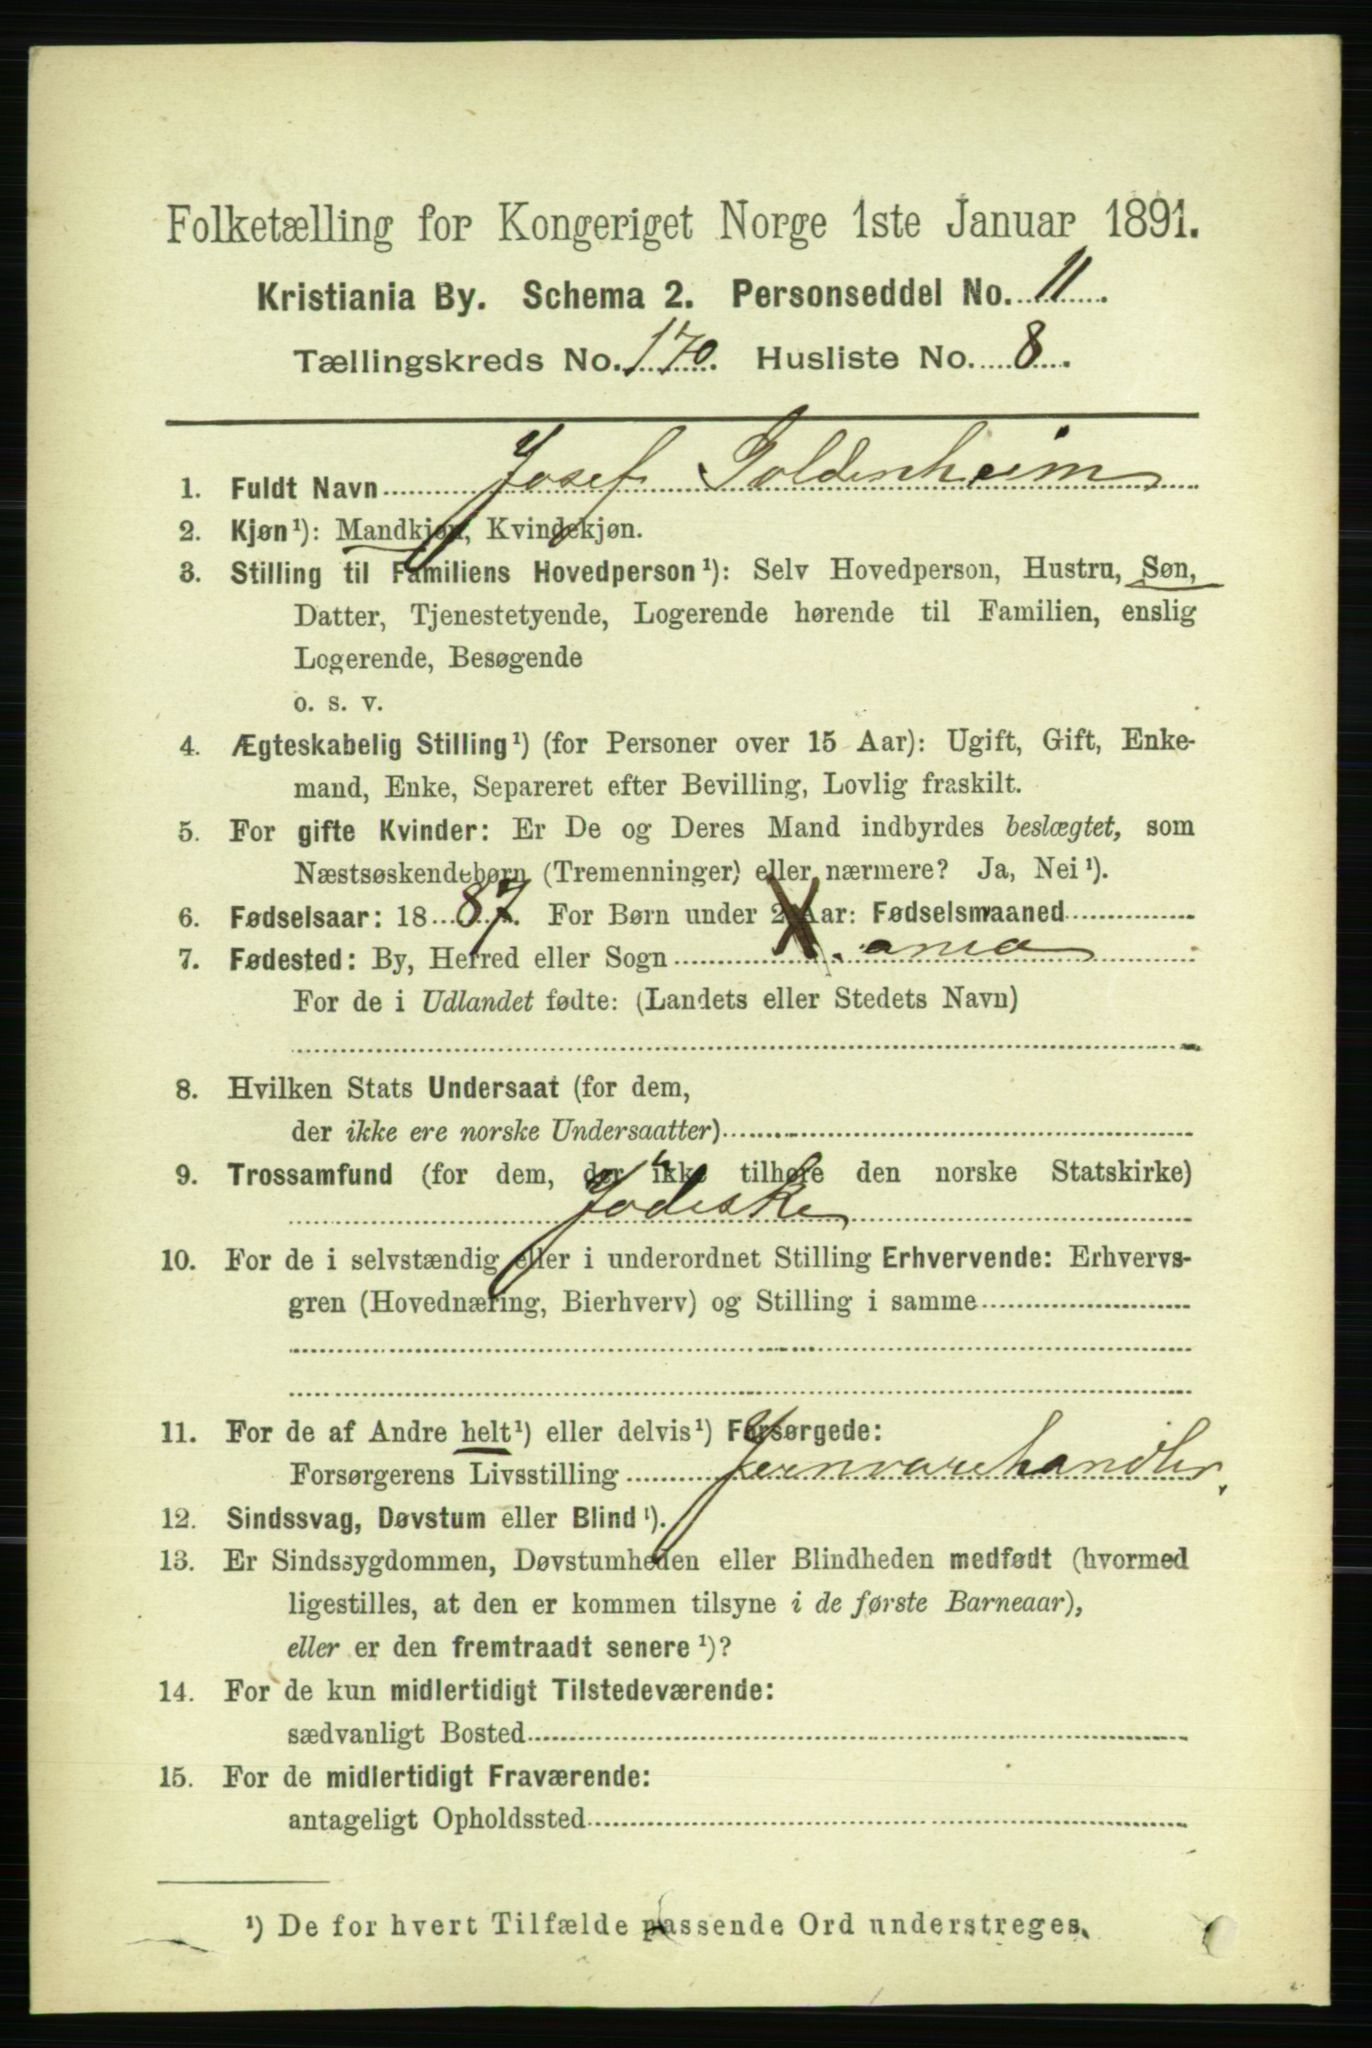 Folketælling for Kongeriget Norge 1ste Januar 1891.
Kristiania By. Schema 2. Personseddel No. 11.
Tællingskreds No. 170. Husliste No. 8.
1. Fuldt Navn Josef Goldenheim
2. Kjøn¹): Mandkjøn, Kvindekjøn.
3. Stilling til Familiens Hovedperson¹): Selv Hovedperson, Hustru, Søn,
Datter, Tjenestetyende, Logerende hørende til Familien, enslig
Logerende, Besøgende
o. s. v.
4. Ægteskabelig Stilling¹) (for Personer over 15 Aar): Ugift, Gift, Enke-
mand, Enke, Separeret efter Bevilling, Lovlig fraskilt.
5. For gifte Kvinder: Er De og Deres Mand indbyrdes beslægtet, som
Næstsøskendebørn (Tremenninger) eller nærmere? Ja, Nei¹).
6. Fødselsaar: 1887. For Børn under 2 Aar: Fødselsmaaned
7. Fødested: By, Herred eller Sogn X.ania
For de i Udlandet fødte: (Landets eller Stedets Navn)
8. Hvilken Stats Undersaat (for dem,
der ikke ere norske Undersaatter)
9. Trossamfund (for dem, der ikke tilhøre den norske Statskirke)
Jødiske
10. For de i selvstændig eller i underordnet Stilling Erhvervende: Erhvervs-
gren (Hovednæring, Bierhverv) og Stilling i samme
11. For de af Andre helt¹) eller delvis¹) Forsørgede:
Forsørgerens Livsstilling Jernvarehandler.
12. Sindssvag, Døvstum eller Blind¹).
13. Er Sindssygdommen, Døvstumheden eller Blindheden medfødt (hvormed
ligestilles, at den er kommen tilsyne i de første Barneaar),
eller er den fremtraadt senere¹)?
14. For de kun midlertidigt Tilstedeværende:
sædvanligt Bosted
15. For de midlertidigt Fraværende:
antageligt Opholdssted
¹) De for hvert Tilfælde passende Ord understreges.